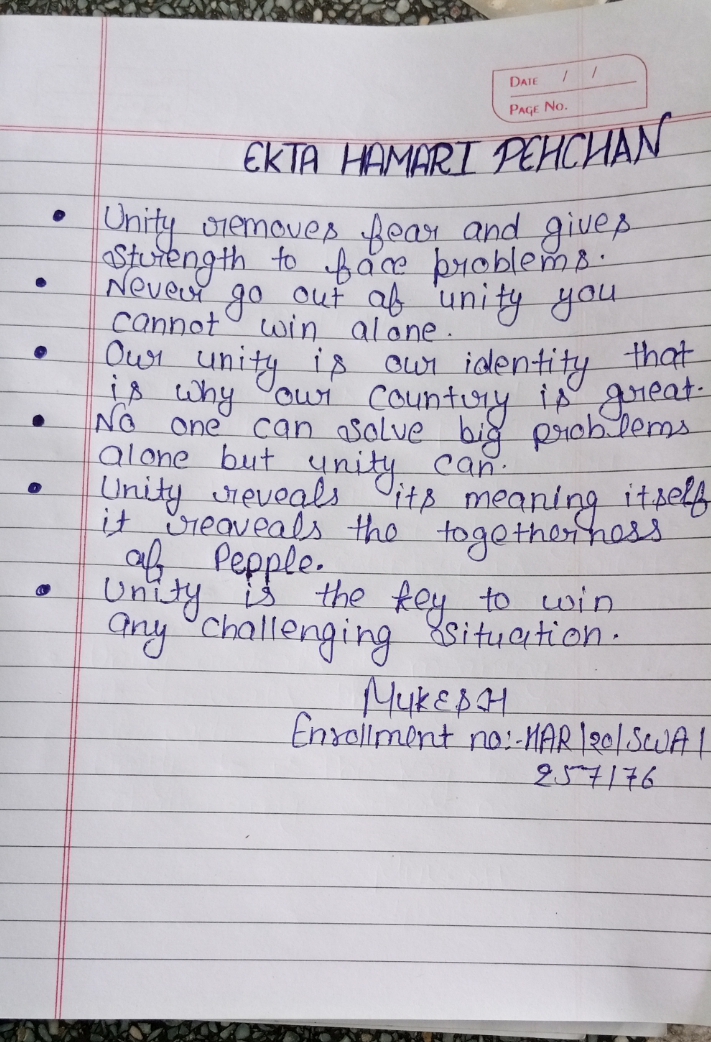 DATE / /
PAGE NO.
EKTA HAMARI PEHCHAN
• Unity removes fear and gives
strength to face problems.
• Never go out of unity you
cannot win alone.
• Our unity is our identity that
is why our country is great.
• No one can solve big problems
alone but unity can.
• Unity reveals its meaning itself
it reaveals the togetherness
of Pepple.
• Unity is the key to win
any challenging situation.
MUKESH
Enrollment no:-HAR/20/SWA/
257176